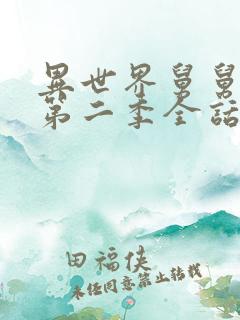 異世界舅舅
第二季全話
田福俠
未経同意禁止轉載